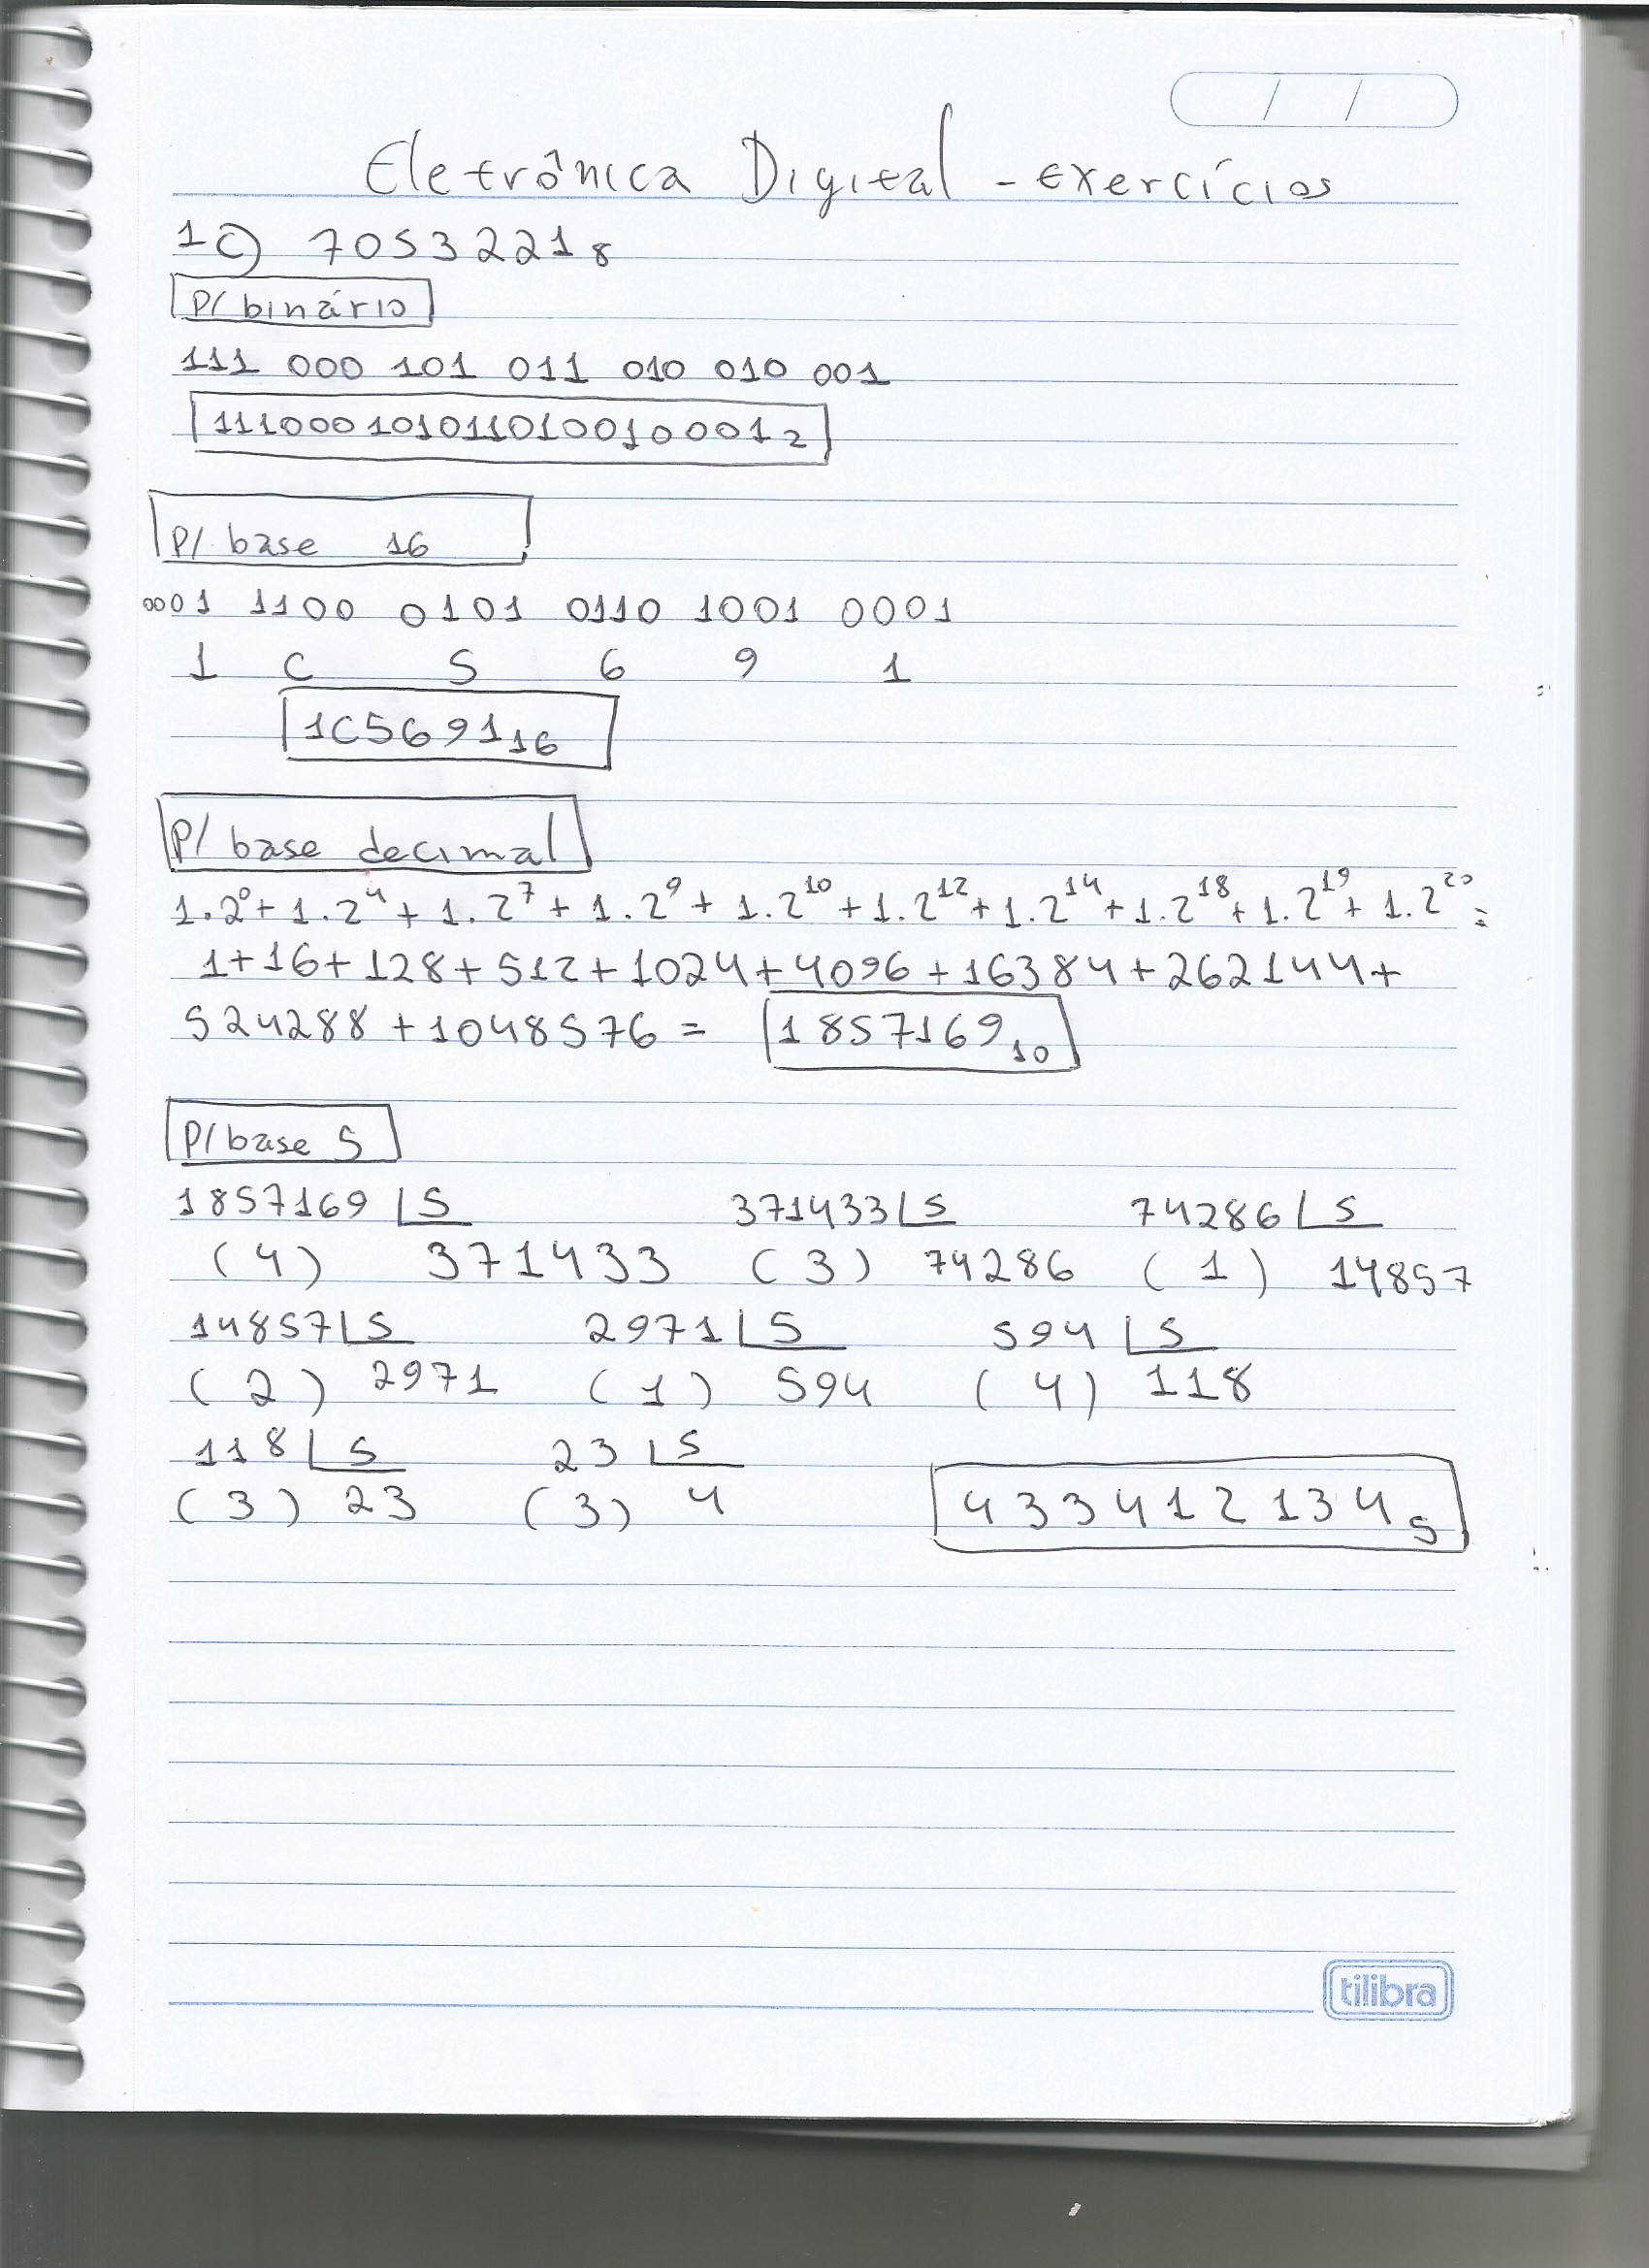 / /
Eletrônica Digital - exercícios
1 c) 7053221₈
P/ binário
111 000 101 011 010 010 001
111000101011010010001₂
P/ base 16
0001 1100 0101 0110 1001 0001
1 C 5 6 9 1
1C5691₁₆
P/ base decimal
1.2⁰ + 1.2⁴ + 1.2⁷ + 1.2⁹ + 1.2¹⁰ + 1.2¹² + 1.2¹⁴ + 1.2¹⁸ + 1.2¹⁹ + 1.2²⁰ =
1+16+128+512+1024+4096+16384+262144+
524288+1048576 = 1857169₁₀
P/ base 5
1857169 |5 371433 |5 74286 |5
(4) 371433 (3) 74286 (1) 14857
14857 |5 2971 |5 594 |5
(2) 2971 (1) 594 (4) 118
118 |5 23 |5
(3) 23 (3) 4 433412134₅
tilibra